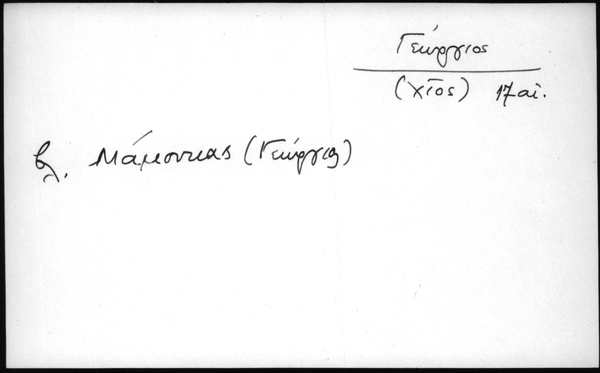 Γεώργιος
(Χῖος) 17 αἰ.
βλ. Μάμουκας (Γεώργιος)